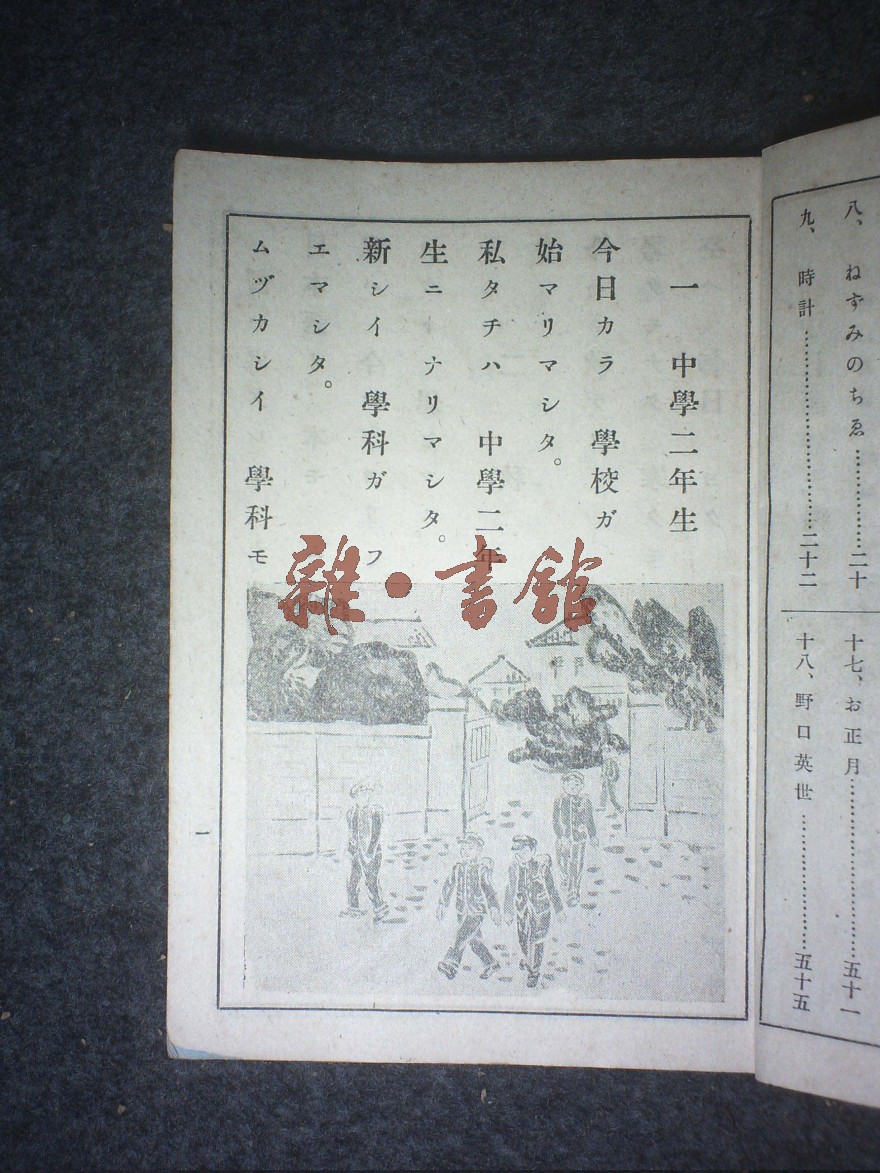 八、ねずみのちゑ………………二十
九、時計………………………二十二
十七、お正月………………………五十一
十八、野口英世………………五十五
一 中學二年生
今日カラ 學校ガ
始マリマシタ。
私タチハ 中學二年
生ニ ナリマシタ。
新シイ 學科ガ フ
エマシタ。
ムヅカシイ 學科モ
一
雜·書館